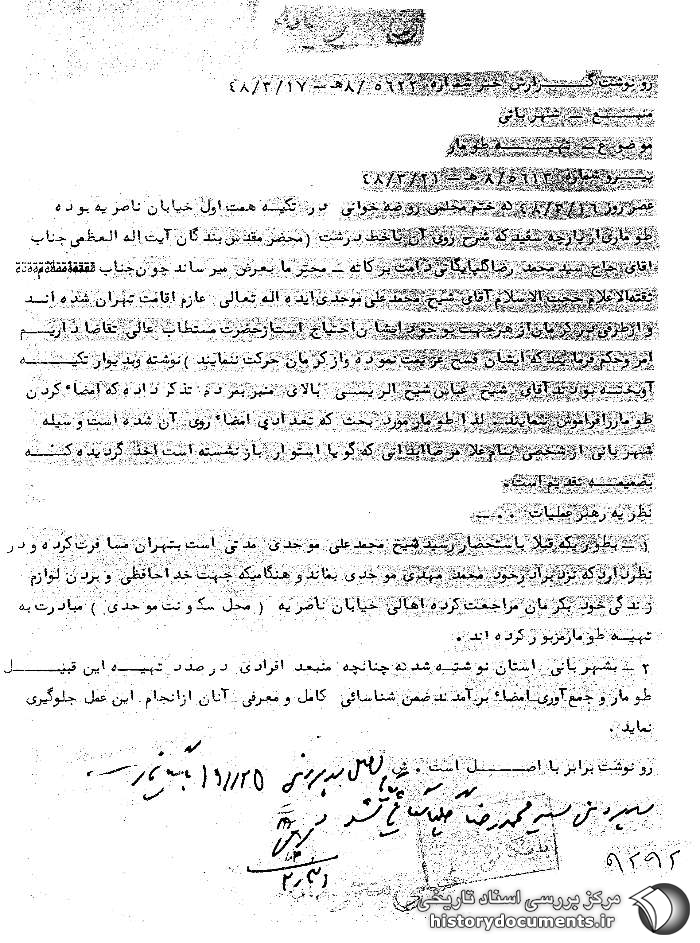 رونوشت گـــزارش خبر شماره ۵۶۲۲/۸هـ – ۴۸/۳/۱۷
منبـــع – شهربانی
موضوع – تهیـــه طومار
پیرو شماره ۵۶۱۳/۸هـ – ۴۸/۳/۲۱
عصر روز ۴۸/۳/۱۶ که ختم مجلس روضه خوانی در تکیه همت اول خیابان ناصریه بوده
طوماری از پارچه سفید که شرح روی آن با خط درشت (محضر مقدس بندگان آیت اله العظمی جناب
اقای حاج سید محمد رضا گلپایگانی دامت برکاته – محترما بعرض میرساند چون جناب
ثقةالاعلام حجت الاسلام آقای شیخ محمدعلی موحدی ایده اله تعالی عازم اقامت تهران شده انـد
و از طرفی مردم کرمان از هر جهت بوجود ایشان احتیاج است از حضرت مستطاب عالی تقاضا داریـم
امر و حکم فرمائید که ایشان فسخ عزیمت نموده و از کرمان حرکت ننمایند) نوشته و بدیوار تکیـــه
آویخته بودند آقای شیخ عباس شیخ الرئیسی بالای منبر بمردم تذکر داده که امضاء کردن
طومار را فراموش ننمایند – لذا طومار مورد بحث که تعدادی امضاء روی آن شده است وسیله
شهربانی از شخصی بنام غلامرضا که گویا استوار بازنشسته است اخذ گردیده کـــه
بضمیمـــه تقدیم است.
نظریه رهبر عملیات ۰۰۰ –
۱ – بطوریکه قبلا باستحضار رسید شیخ محمدعلی موحدی مدتی است بتهران مسافرت کرده و در
نظر دارد که نزد برادر خود محمد مهدی موحدی بماند و هنگامیکه جهت خداحافظی و بردن لوازم
زندگی خود بکرمان مراجعت کرده اهالی خیابان ناصریه (محل سکونت موحدی) مبادرت به
تهیـه طومار مزبور کرده اند.
۲ – بشهربانی استان نوشته شد که چنانچه منبعد افرادی در صدد تهیـــه این قبیـــل
طومار و جمع آوری امضاء برآمدند ضمن شناسائی کامل و معرفی آنان از انجام این عمل جلوگیری
نماید.
رونوشت برابر با اصـــل است. ش
اصل به پرونده ۱۹۱۱۲۵ بایگانی
سید محمدرضا گلپایگانی
۹۲۹۲
۳/۳۱
مرکز بررسی اسناد تاریخی
historydocuments.ir